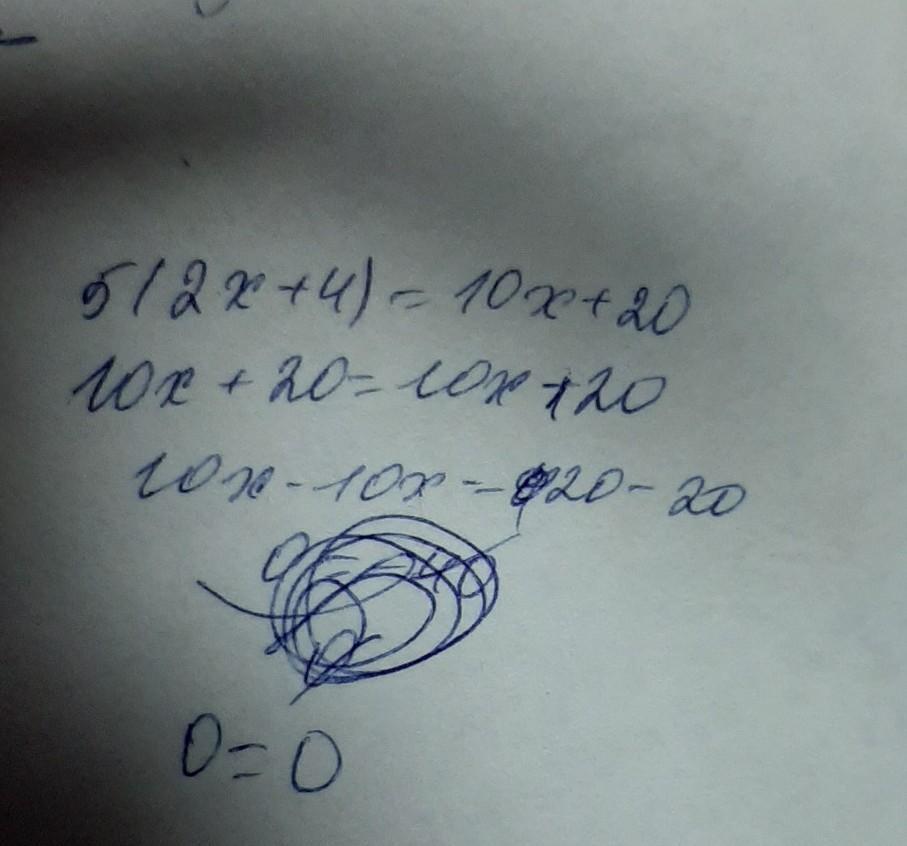 5(2x+4)=10x+20
10x+20=10x+20
10x-10x=20-20
0=0